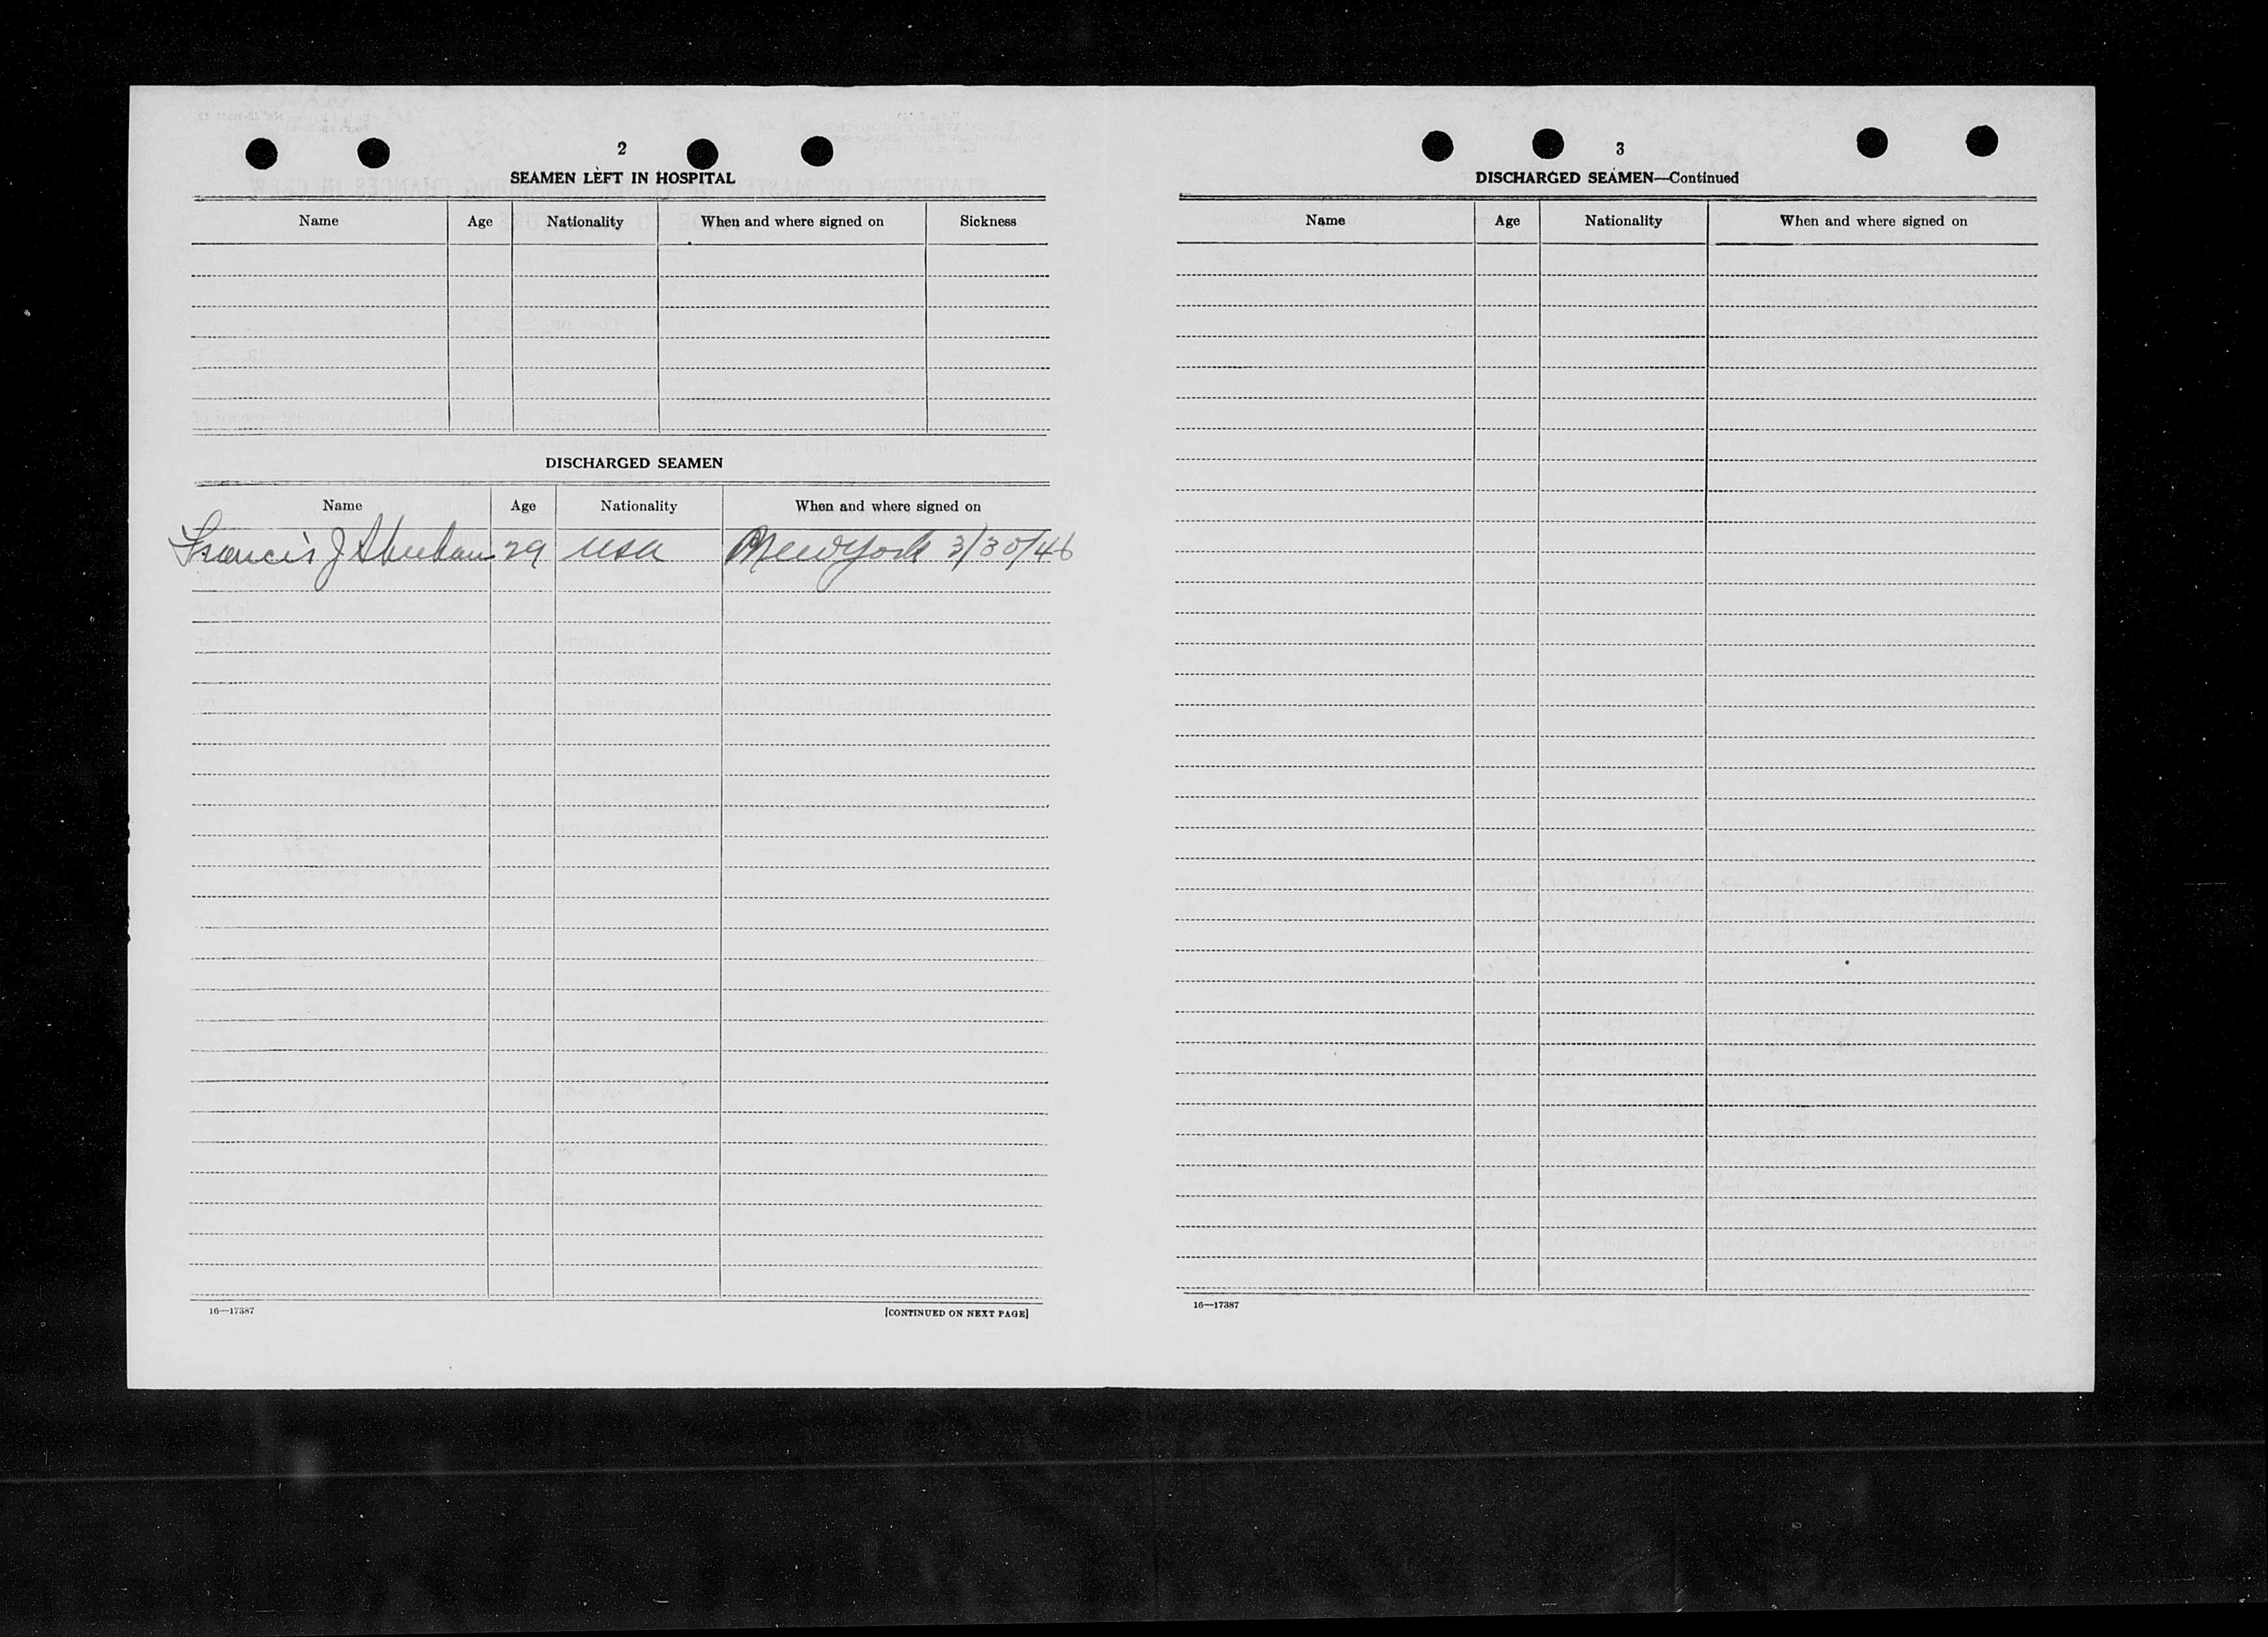 2
SEAMEN LEFT IN HOSPITAL
Name Age Nationality When and where signed on Sickness
DISCHARGED SEAMEN
Name Age Nationality When and where signed on
Francis J Sheehan 29 USA New York 3/30/46
16—17387 [CONTINUED ON NEXT PAGE]
3
DISCHARGED SEAMEN—Continued
Name Age Nationality When and where signed on
16—17387